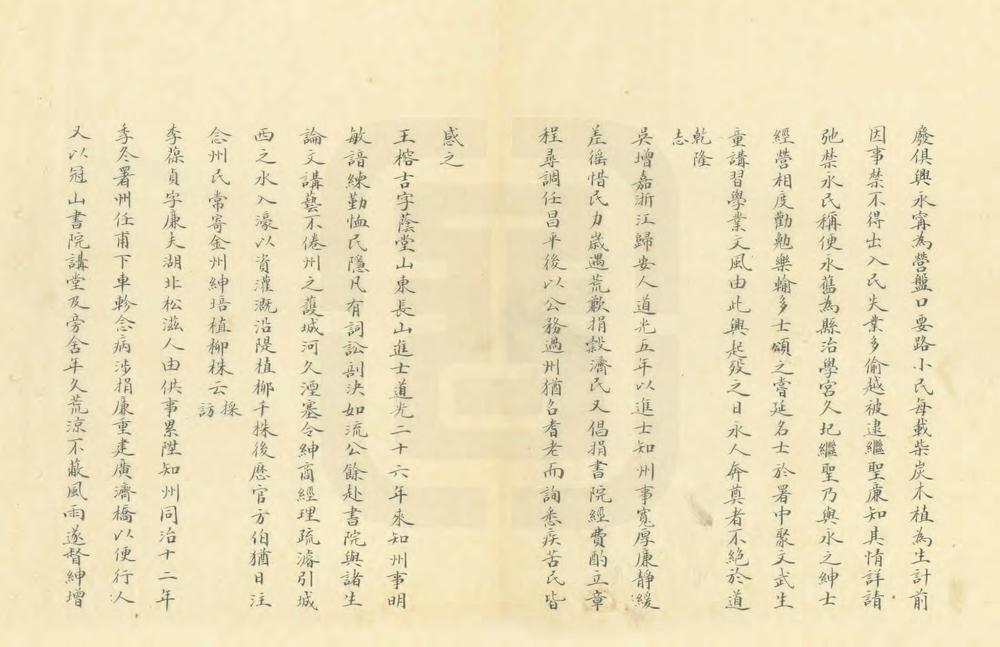 廢俱興永寗為營盤口要路小民每載柴炭木植為生計前
因事禁不得出入民失業多偷越被逮繼聖廉知其情詳請
弛禁永民稱便永舊為縣治學宮久圮繼聖乃與永之紳士
經營相度勸勉樂輸多士頌之嘗延名士於署中聚文武生
童講習學業文風由此興起歿之日永人奔奠者不絕於道
乾隆志
吳增嘉浙江歸安人道光五年以進士知州事寬厚廉靜緩
差徭惜民力歲遇荒歉捐穀濟民又倡捐書院經費酌立章
程尋調任昌平後以公務過州猶召耆老而詢悉疾苦民皆
感之
王榕吉字蔭堂山東長山進士道光二十六年來知州事明
敏諳練勤恤民隱凡有詞訟剖決如流公餘赴書院與諸生
論文講藝不倦州之護城河久湮塞令紳商經理疏濬引城
西之水入濠以資灌溉沿隄植柳千株後歷官方伯猶日注
念州民常寄金州紳培植柳株云採訪
李葆貞字廉夫湖北松滋人由供事累陞知州同治十二年
季冬署州任甫下車軫念病涉捐廉重建廣濟橋以便行人
又以冠山書院講堂及旁舍年久荒涼不蔽風雨遂督紳增